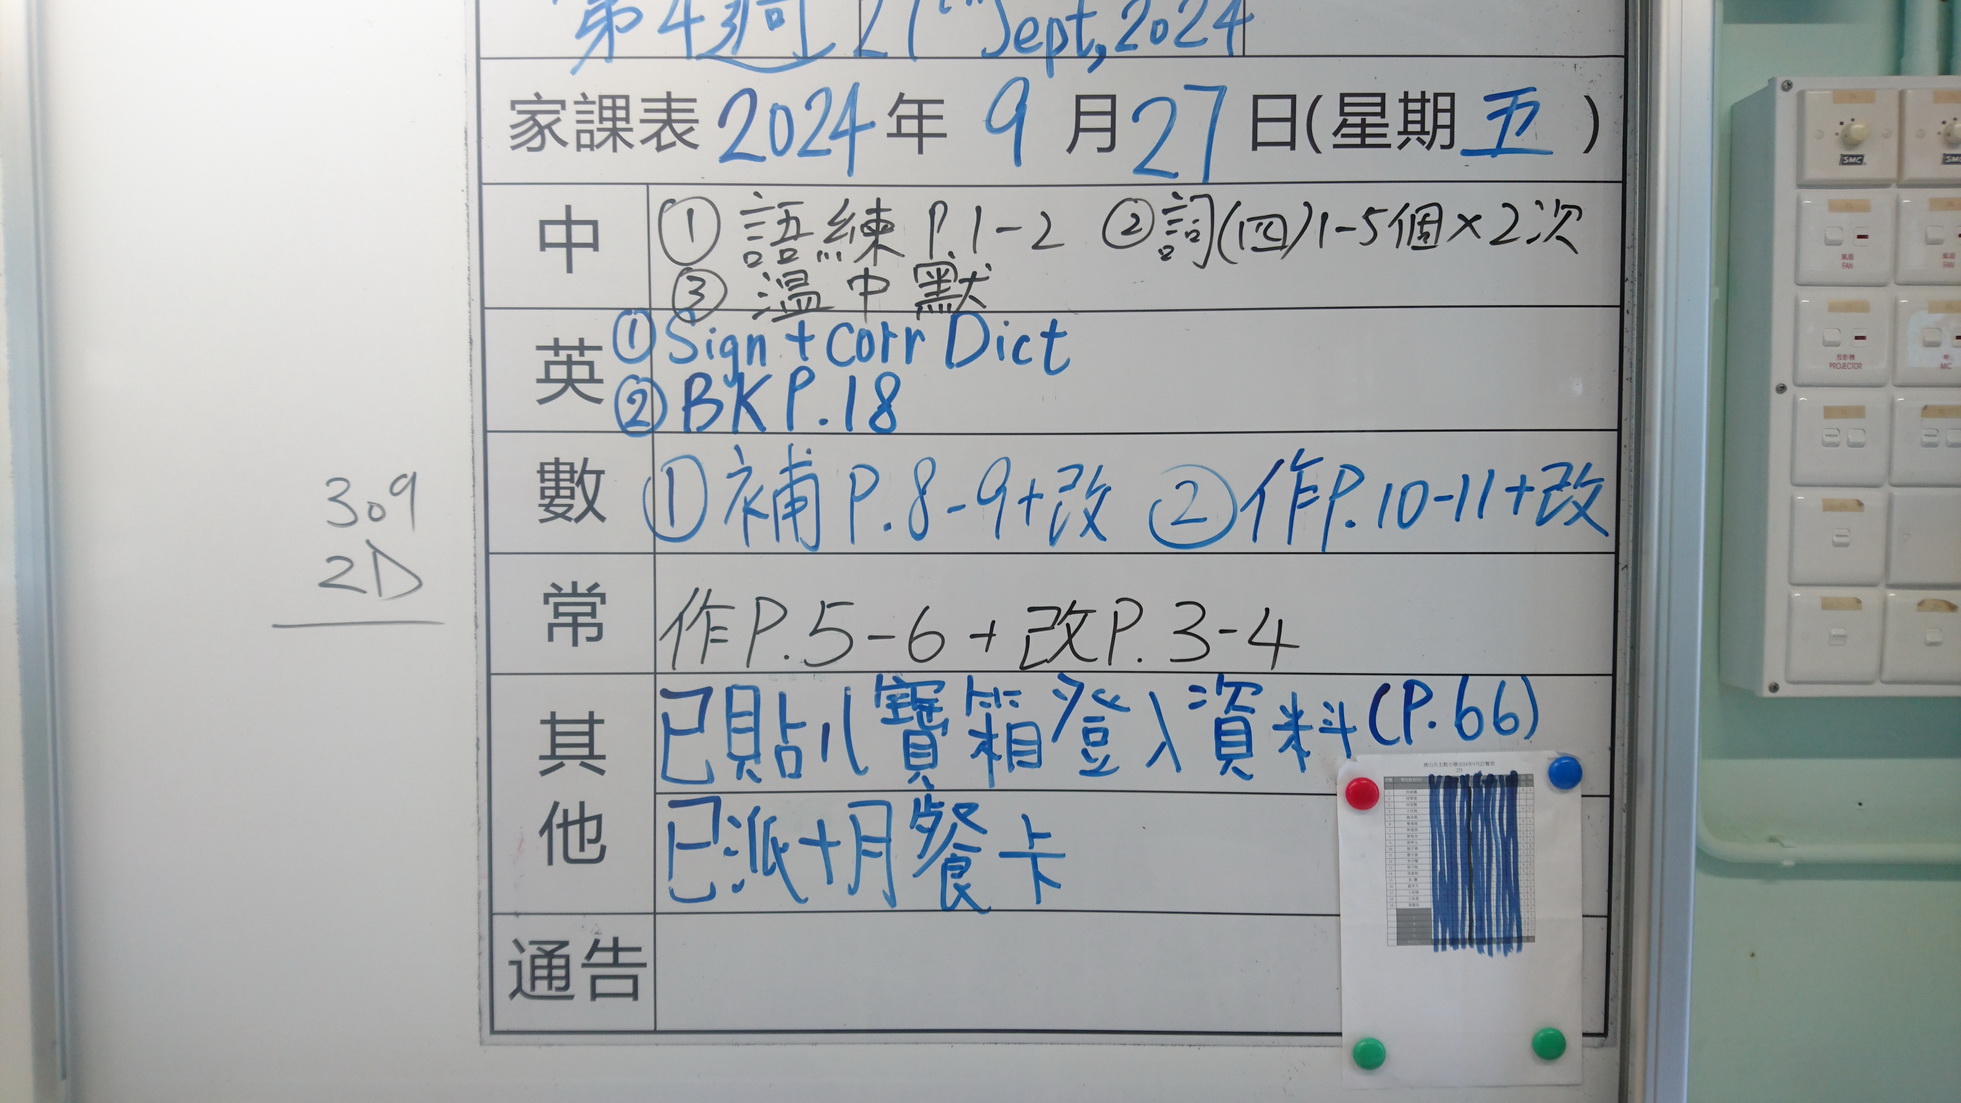 第4週 27th Sept, 2024
家課表 2024 年 9 月 27 日(星期 五 )
中 ① 語練 P.1-2 ② 詞(四) 1-5個×2次
③ 溫中默
英 ① Sign + Corr Dict
② BK P.18
數 ① 補 P.8-9+改 ② 作P.10-11+改
常 作P.5-6 + 改P.3-4
其他 已貼八寶箱登入資料(P.66)
已派十月餐卡
通告
309
2D
SMC
SMC
風扇
FAN
風扇
FAN
投影機
PROJECTOR
MIC